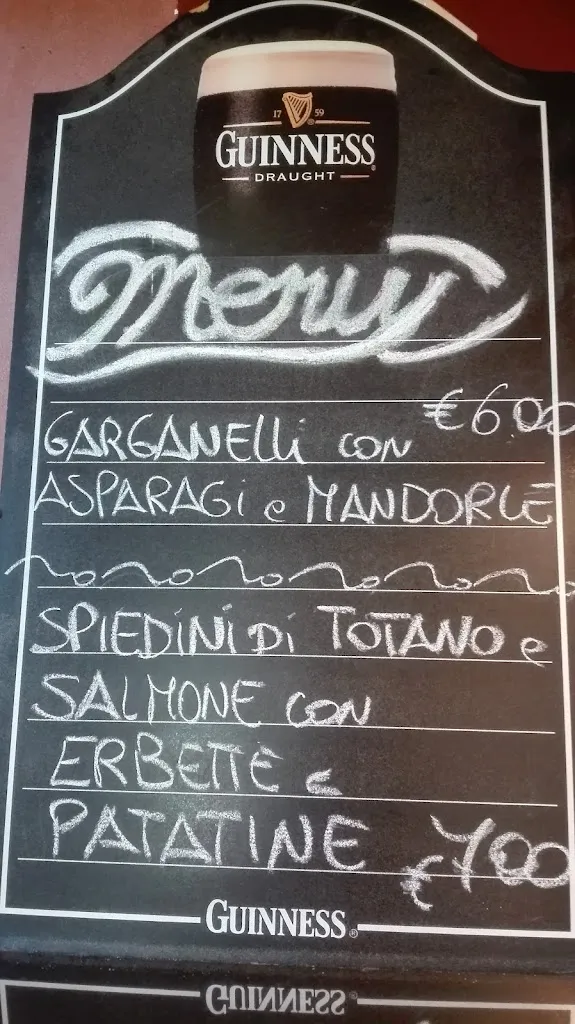 17 59
GUINNESS
DRAUGHT
Menu
€600
GARGANELLI CON
ASPARAGI e MANDORLE
SPIEDINI DI TOTANO e
SALMONE CON
ERBETTE e
PATATINE
€700
GUINNESS
GUINNESS